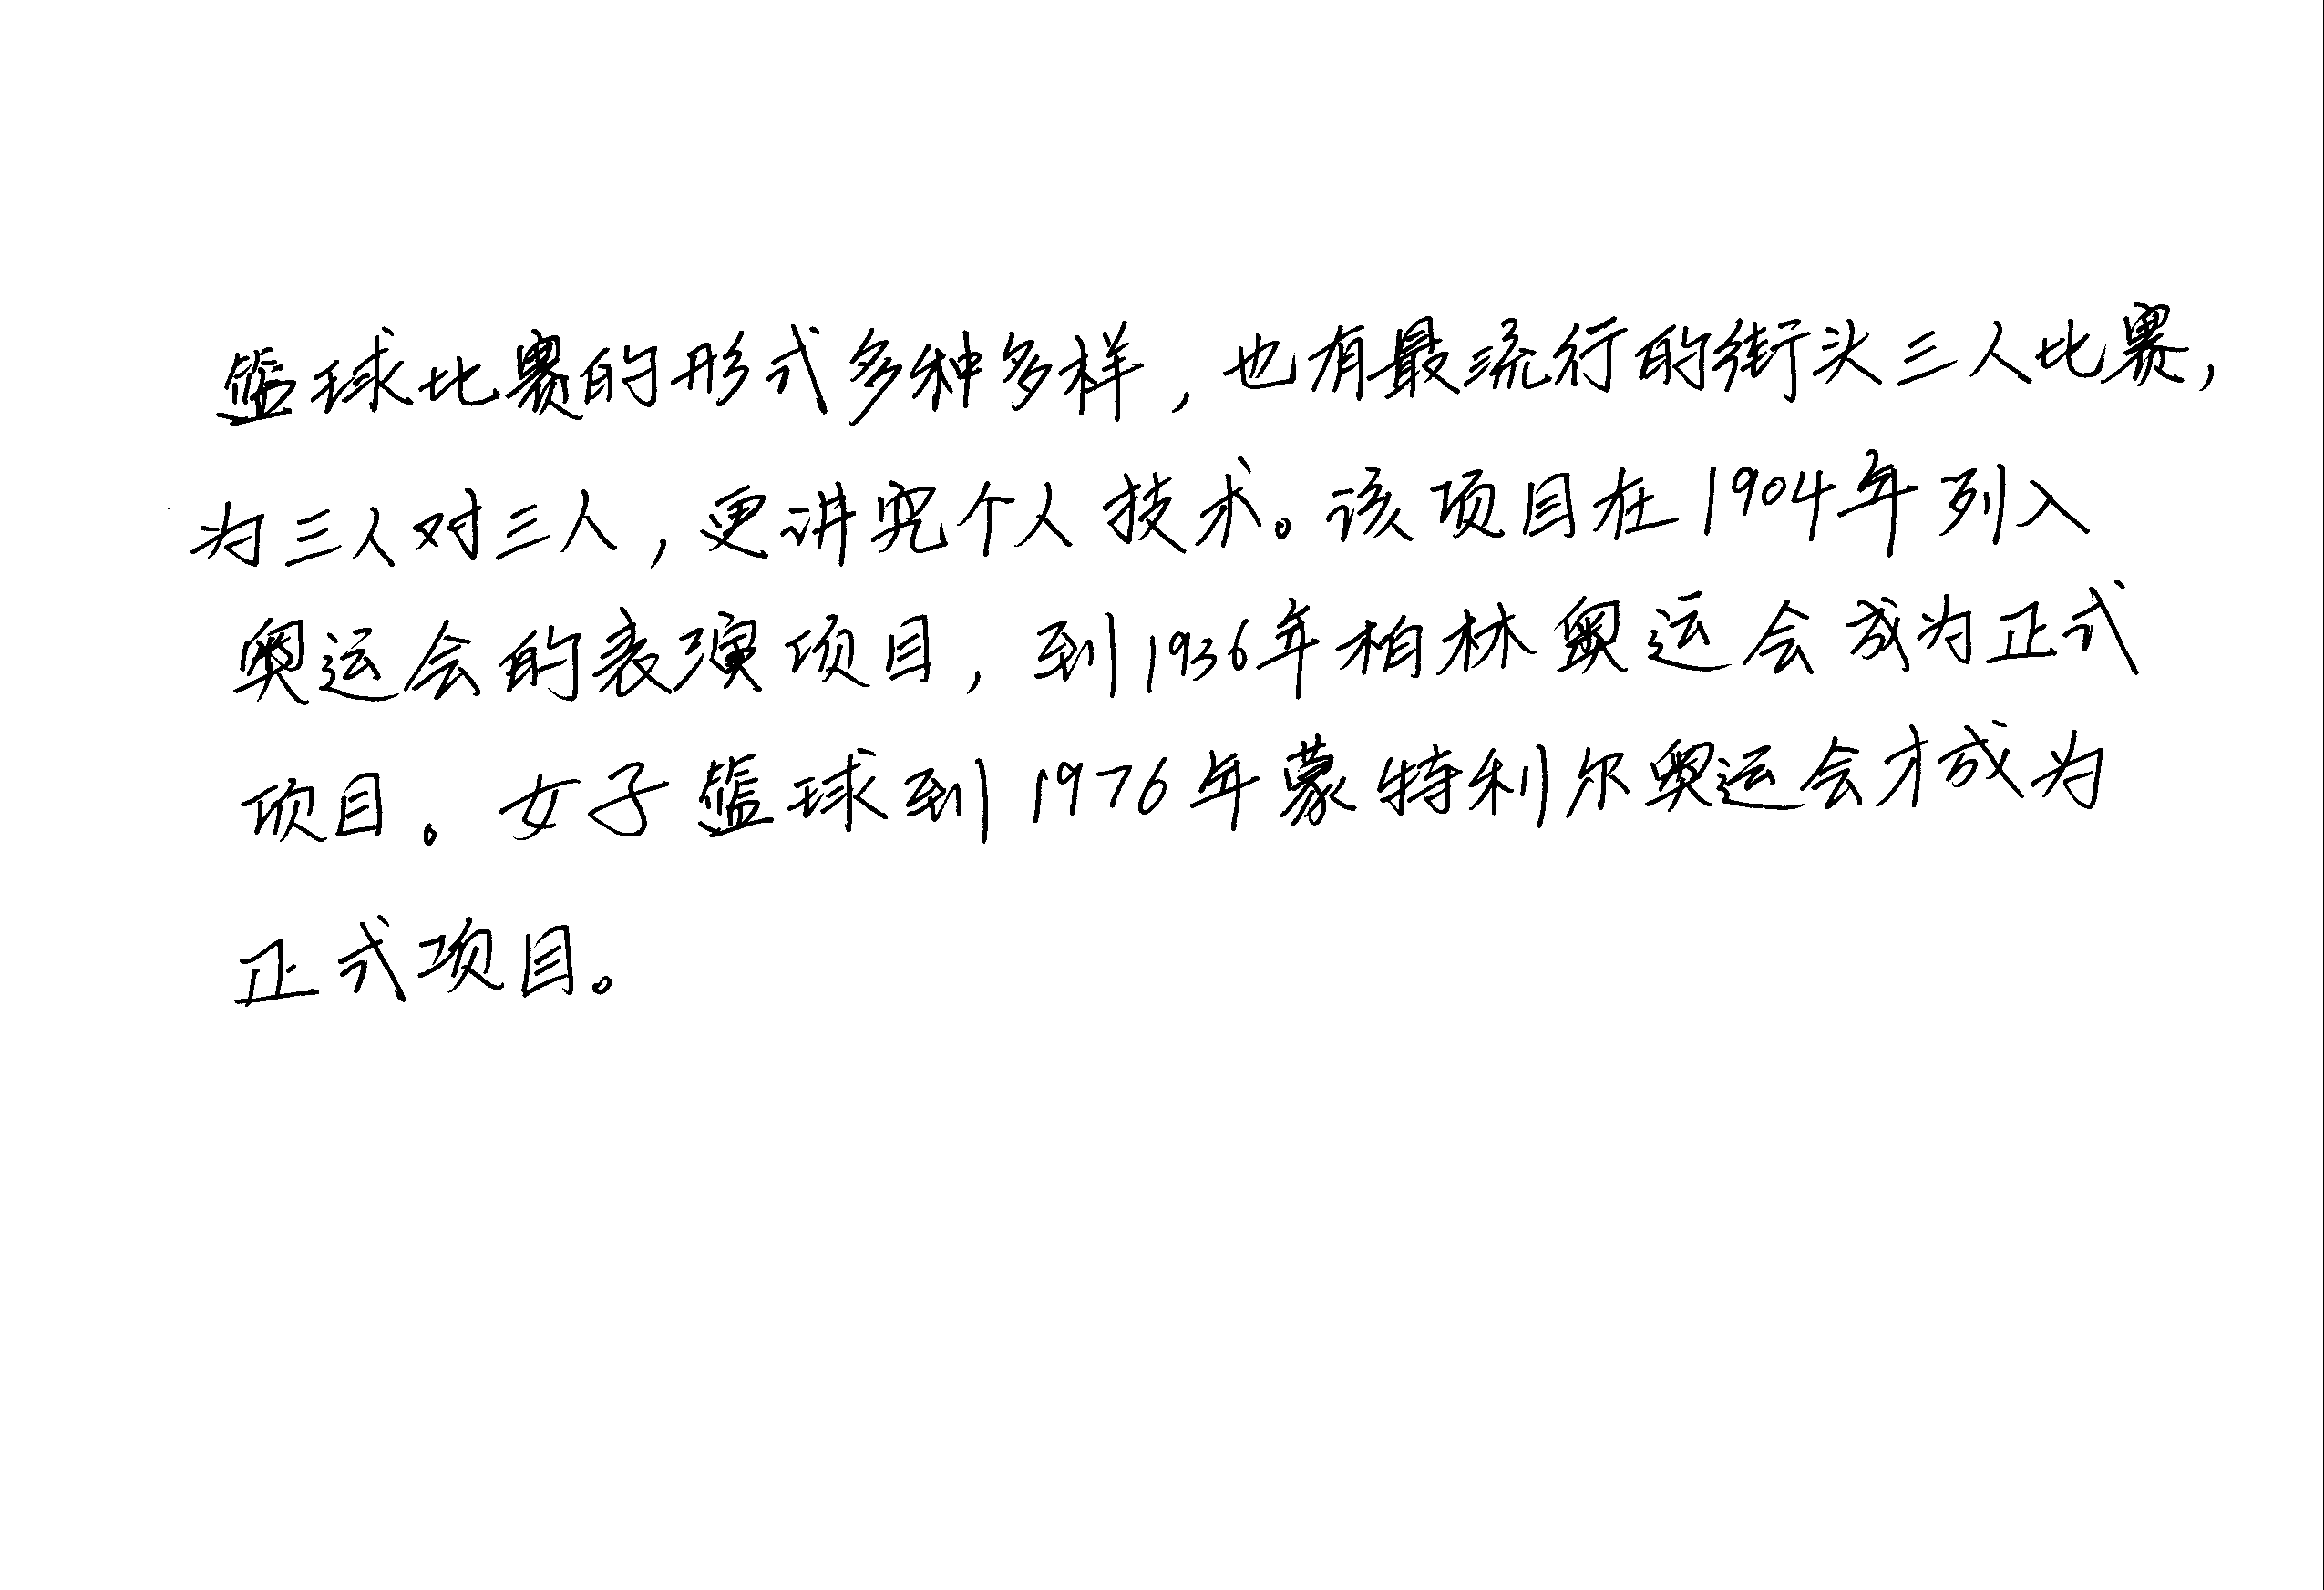 篮球比赛的形式多种多样，也有最流行的街头三人比赛，
为三人对三人，更讲究个人技术。该项目在1904年列入
奥运会的表演项目，到1936年柏林奥运会成为正式
项目。女子篮球到1976年蒙特利尔奥运会才成为
正式项目。